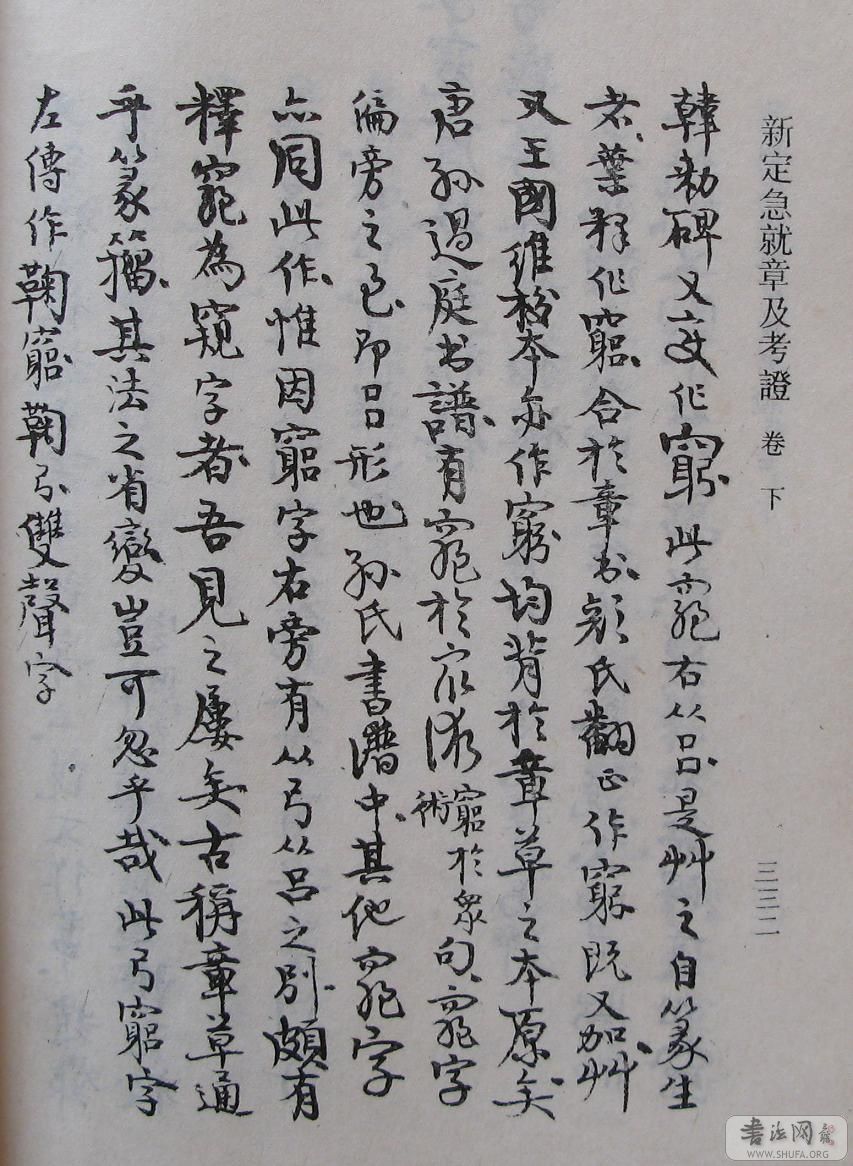 新定急就章及考證 卷下
三三二
韓勑碑又变作窮此窮右从呂是艸之自篆生
者葉釋作窮合於章書顏氏翻正作窮既又加艸
又王國維校本亦作窮均背於章草之本原矣
唐孫過庭書譜有窮於众術窮於眾術句窮字
偏旁之㠯即呂形也孫氏書譜中其他窮字
亦同此作惟因窮字右旁有从弓从呂之別頗有
釋窮為窺字者吾見之屢矣古稱章草通
乎篆籀其法之省變豈可忽乎哉此弓窮字
左傳作鞠窮鞠弓雙聲字
書法网
WWW.SHUFA.ORG